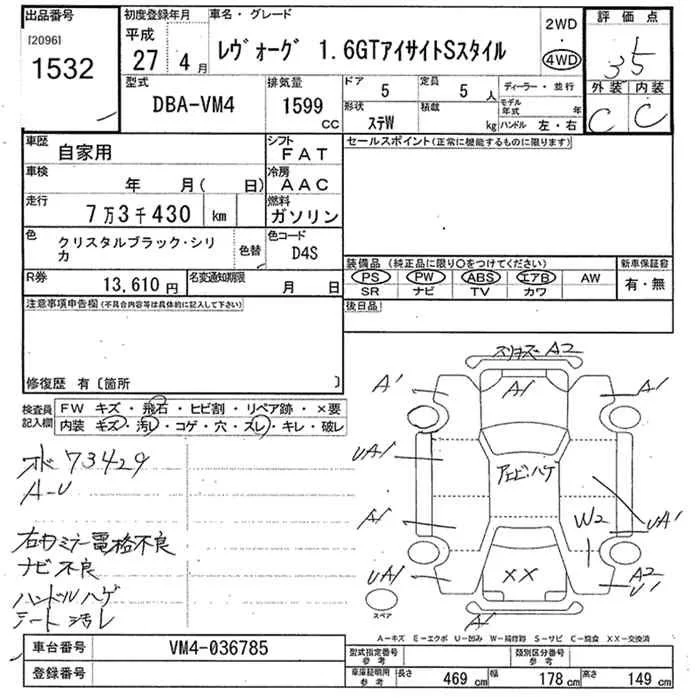 出品番号
[2096]
1532
初度登録年月
平成
27 4 月
車名・グレード
レヴォーグ 1.6GTアイサイトSスタイル
2WD
・
4WD
評価点
3.5
外装 内装
C C
型式
DBA-VM4
排気量
1599
CC
ドア 5
定員 5 人
形状 ステW
積載 kg
ディーラー・並行
モデル年式 年
ハンドル 左・右
車歴 自家用
シフト FAT
車検 年 月( 日)
冷房 AAC
走行 7万3千430 km
燃料 ガソリン
色 クリスタルブラック・シリカ
色替
色コード D4S
R券 13,610円
名変通知期限 月 日
セールスポイント(正常に機能するものに限ります)
装備品(純正品に限り○をつけてください)
PS PW ABS エアB AW
SR ナビ TV カワ
新車保証書
有・無
後日品
注意事項申告欄(不具合内容等は具体的に記入して下さい)
修復歴 有〔箇所 〕
検査員記入欄
FW キズ・飛石・ヒビ割・リペア跡・×要
内装 キズ・汚レ・コゲ・穴・スレ・キレ・破レ
オド 73429
A-U
右ミラー電格不良
ナビ不良
ハンドルハゲ
シート汚レ
A2
A'
A1
A1
UA1
アエビ・ハゲ
A1
W2
UA'
UA1
XX
A2
U'
A'
スペア
A-キズ E-エクボ U-凹み W-補修跡 S-サビ C-腐食 XX-交換済
車台番号 VM4-036785
登録番号
型式指定番号
参考
類別区分番号
参考
車庫証明用
参考
長さ 469 cm
幅 178 cm
高さ 149 cm